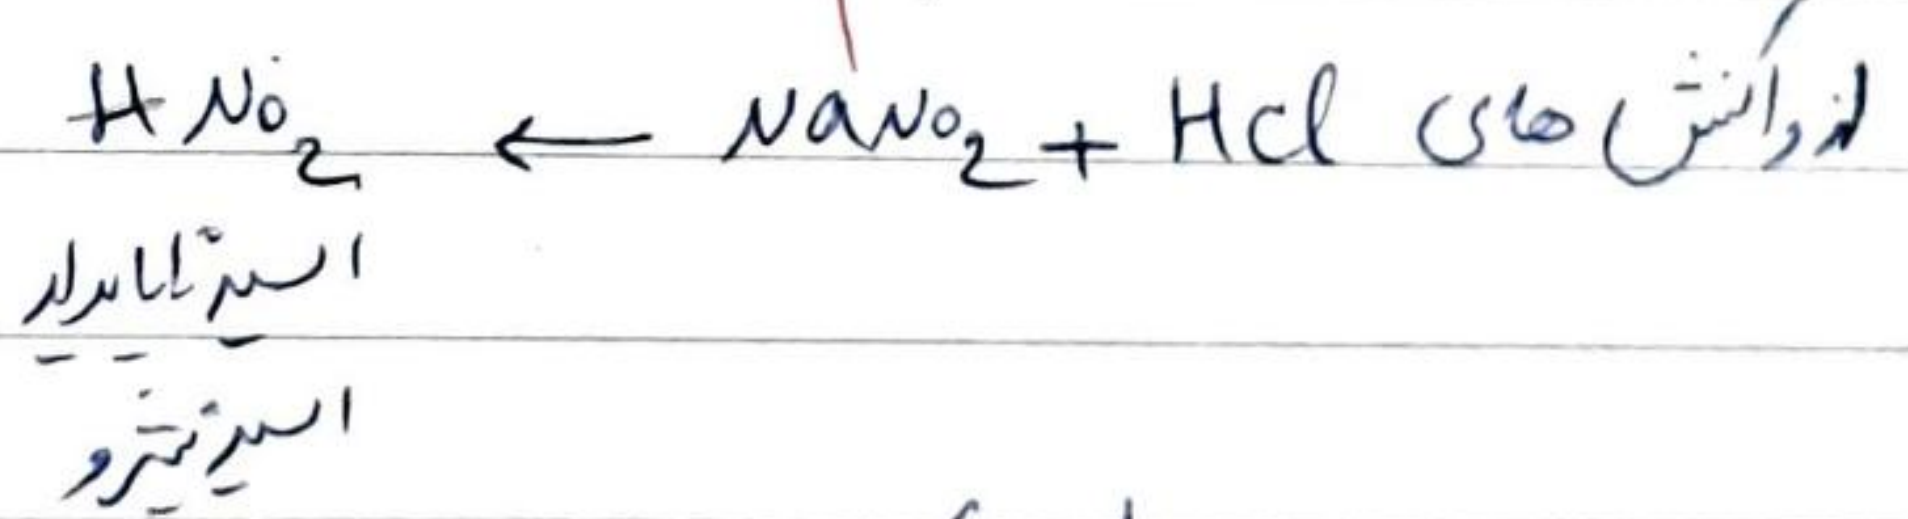 از واکنش های NaNO2 + HCl ← HNO2
اسید ناپایدار
اسید نیترو